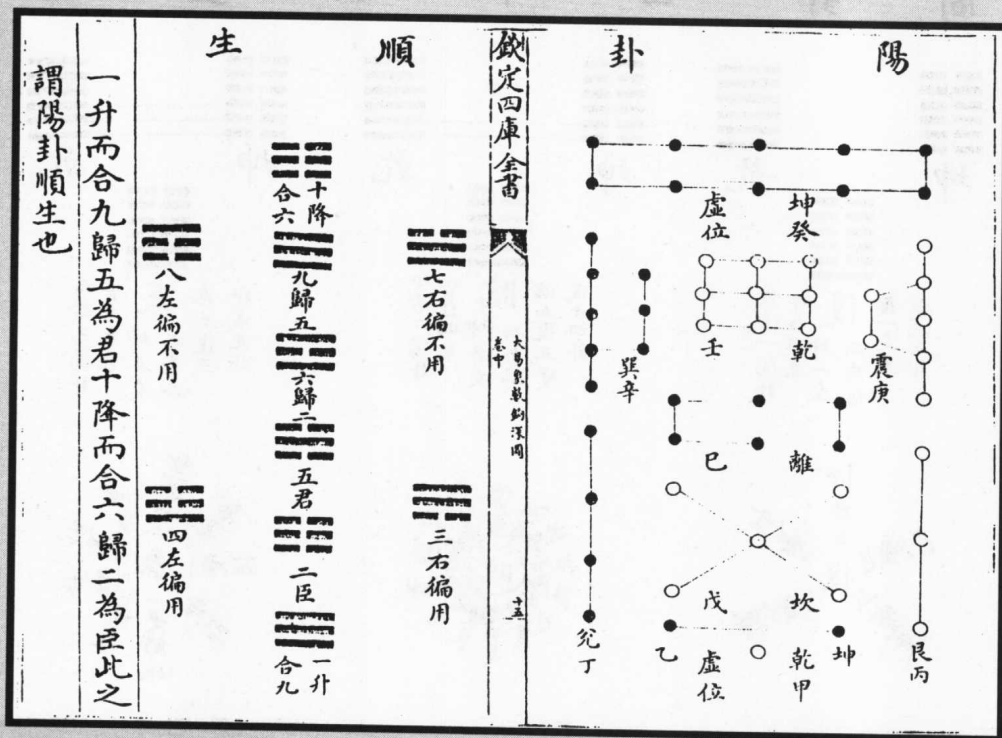 陽
卦
坤癸
虛位
震庚
乾
壬
巽辛
離
巳
坎
戊
艮丙
坤
乾甲
虛位
乙
兌丁
欽定四庫全書
大易象數鈎深圖
卷中
十五
順
生
七右偏不用
三右偏用
十降
合六
九歸五
六歸二
五君
二臣
一升
合九
八左偏不用
四左偏用
一升而合九歸五為君十降而合六歸二為臣此之
謂陽卦順生也